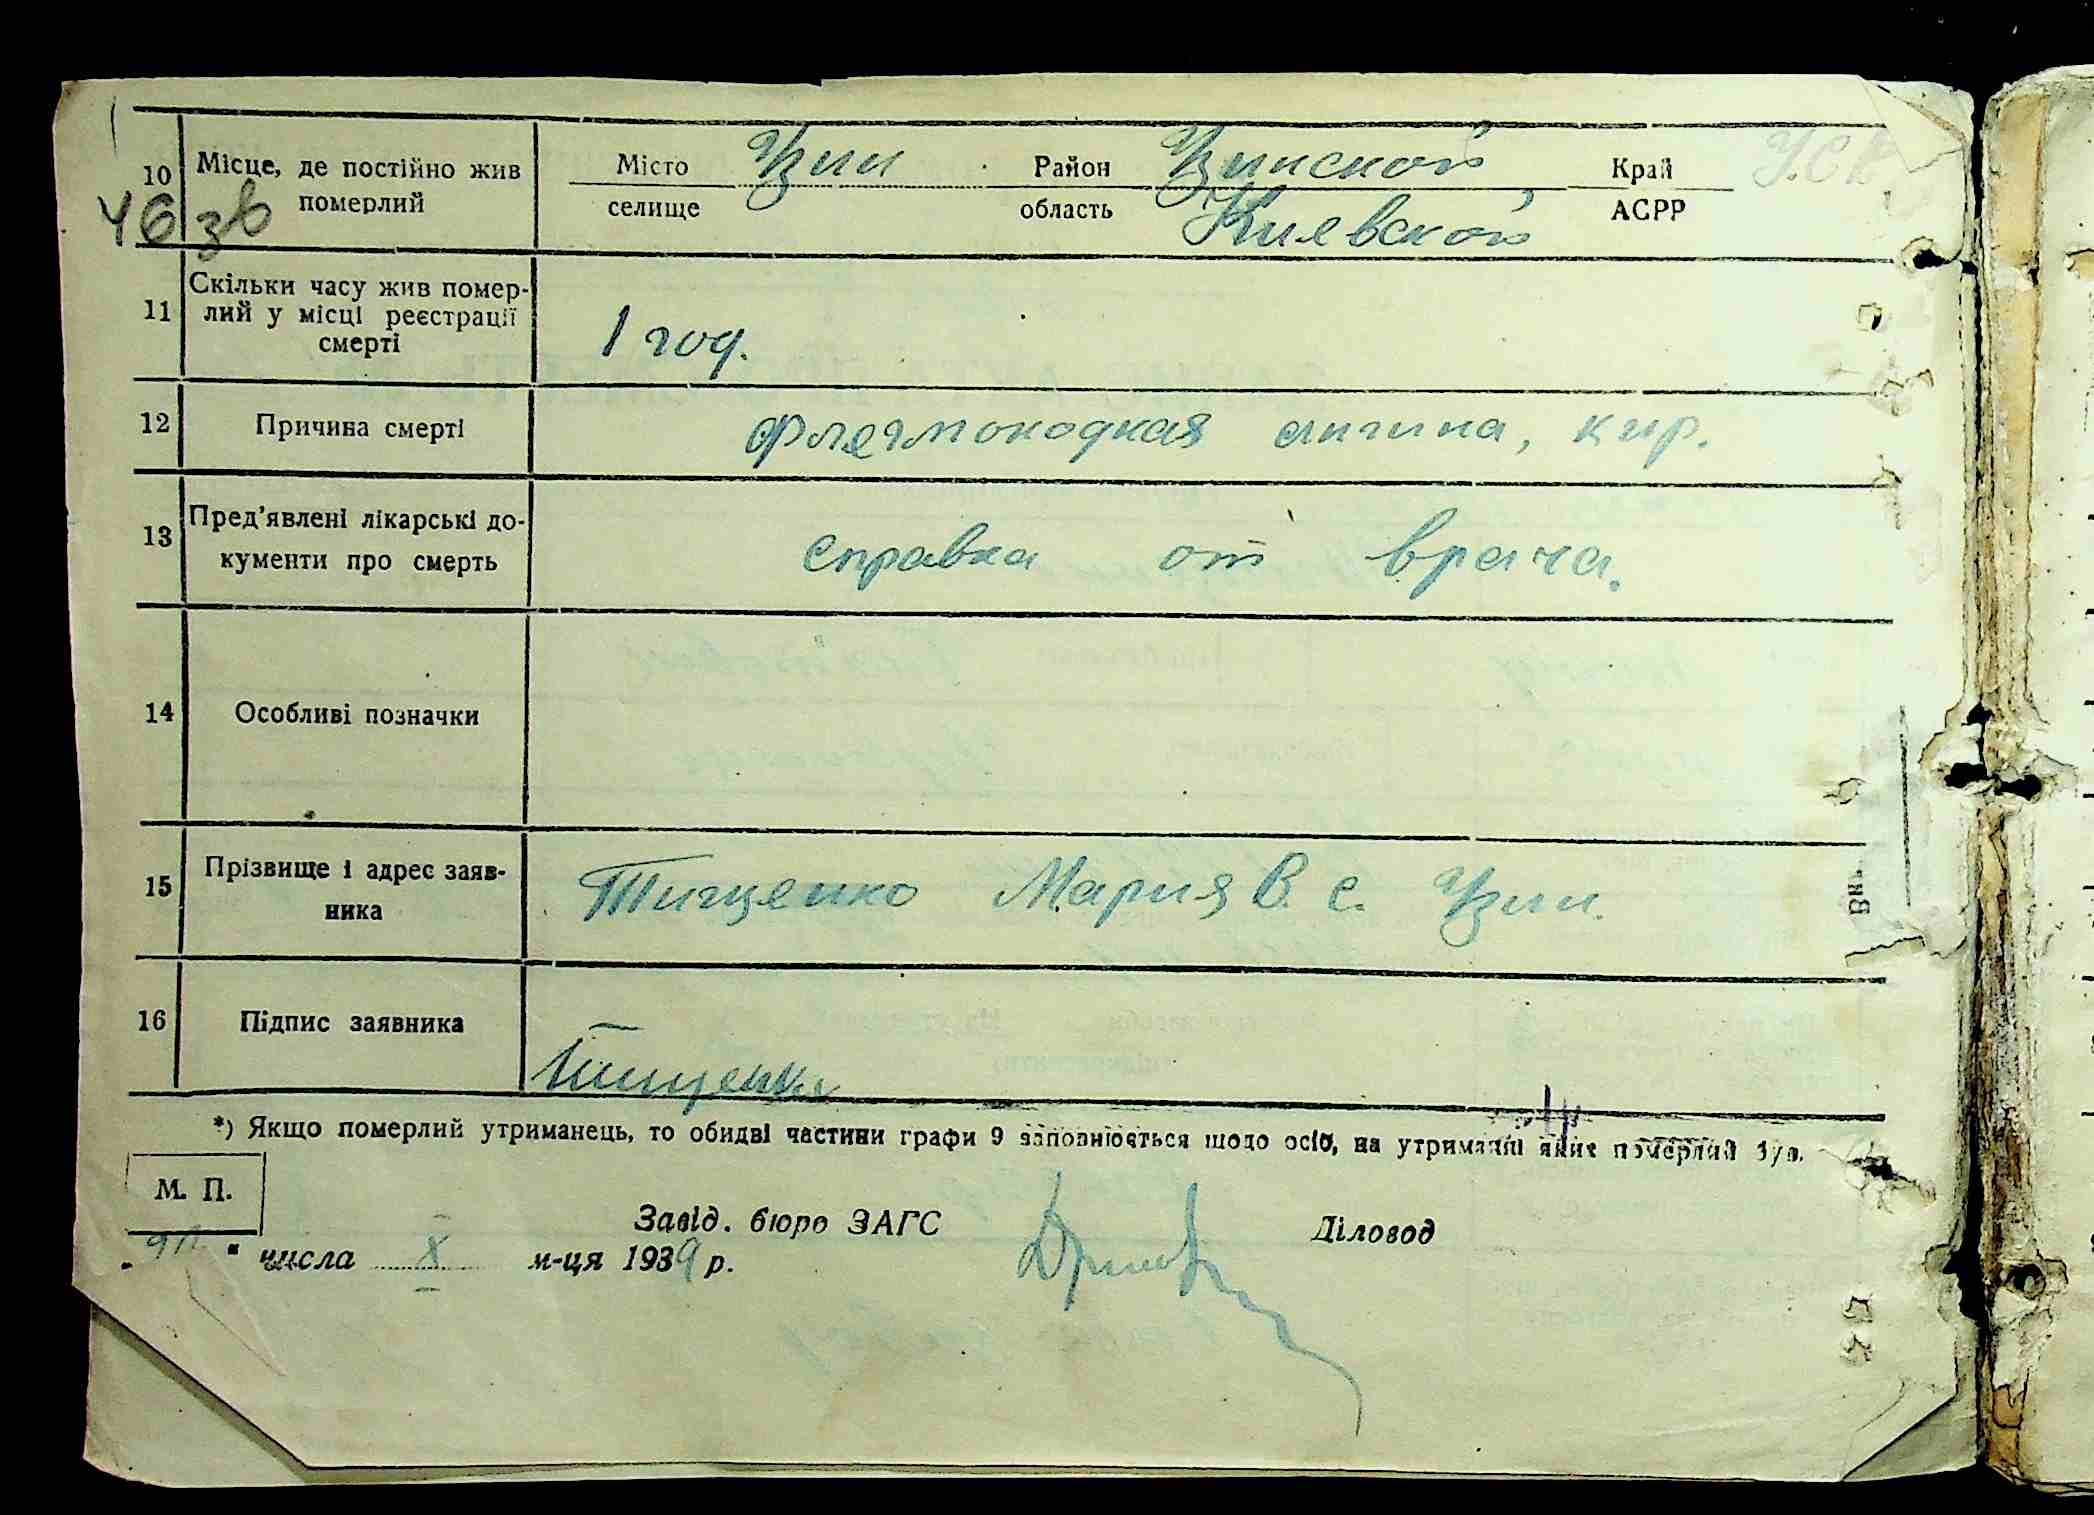 10 Місце, де постійно жив Місто Узин Район Узинской Край
46 зв померлий селище область Киевской АСРР
11 Скільки часу жив помер-
лий у місці реєстрації
смерті
1 год.
12 Причина смерті Флегмонодная ангина,
13 Пред'явлені лікарські до-
кументи про смерть
справка от врача.
14 Особливі позначки
15 Прізвище і адрес заяв-
ника
Тищенко Мария В. с. Узин.
16 Підпис заявника Тищенко
*) Якщо померлий утриманець, то обидві частини графи 9 заповнюється щодо осіб, на утриманні яких померлий був.
М. П.
Завід. бюро ЗАГС Діловод
" числа X м-ця 1939 р.